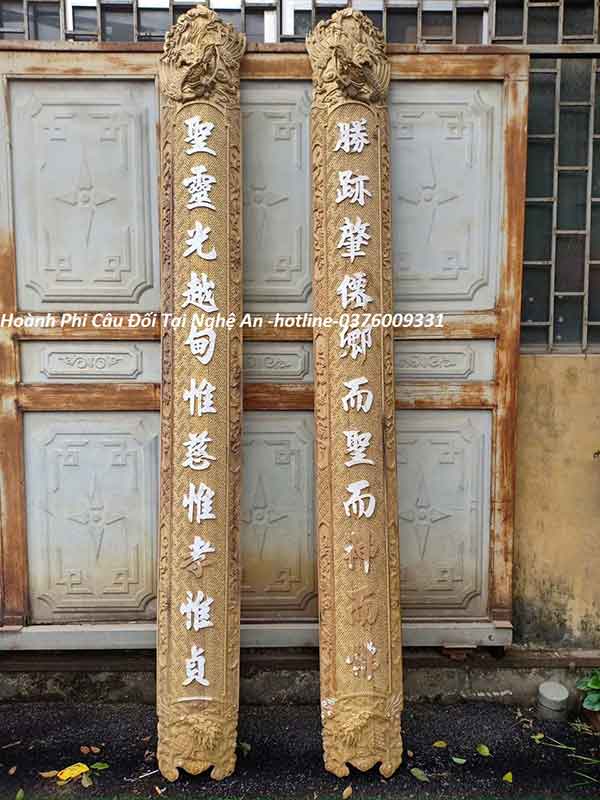 勝跡肇僊鄉而聖而神而
聖靈光越甸惟慈惟孝惟貞
Hoành Phi Câu Đối Tại Nghệ An -hotline-0376009331